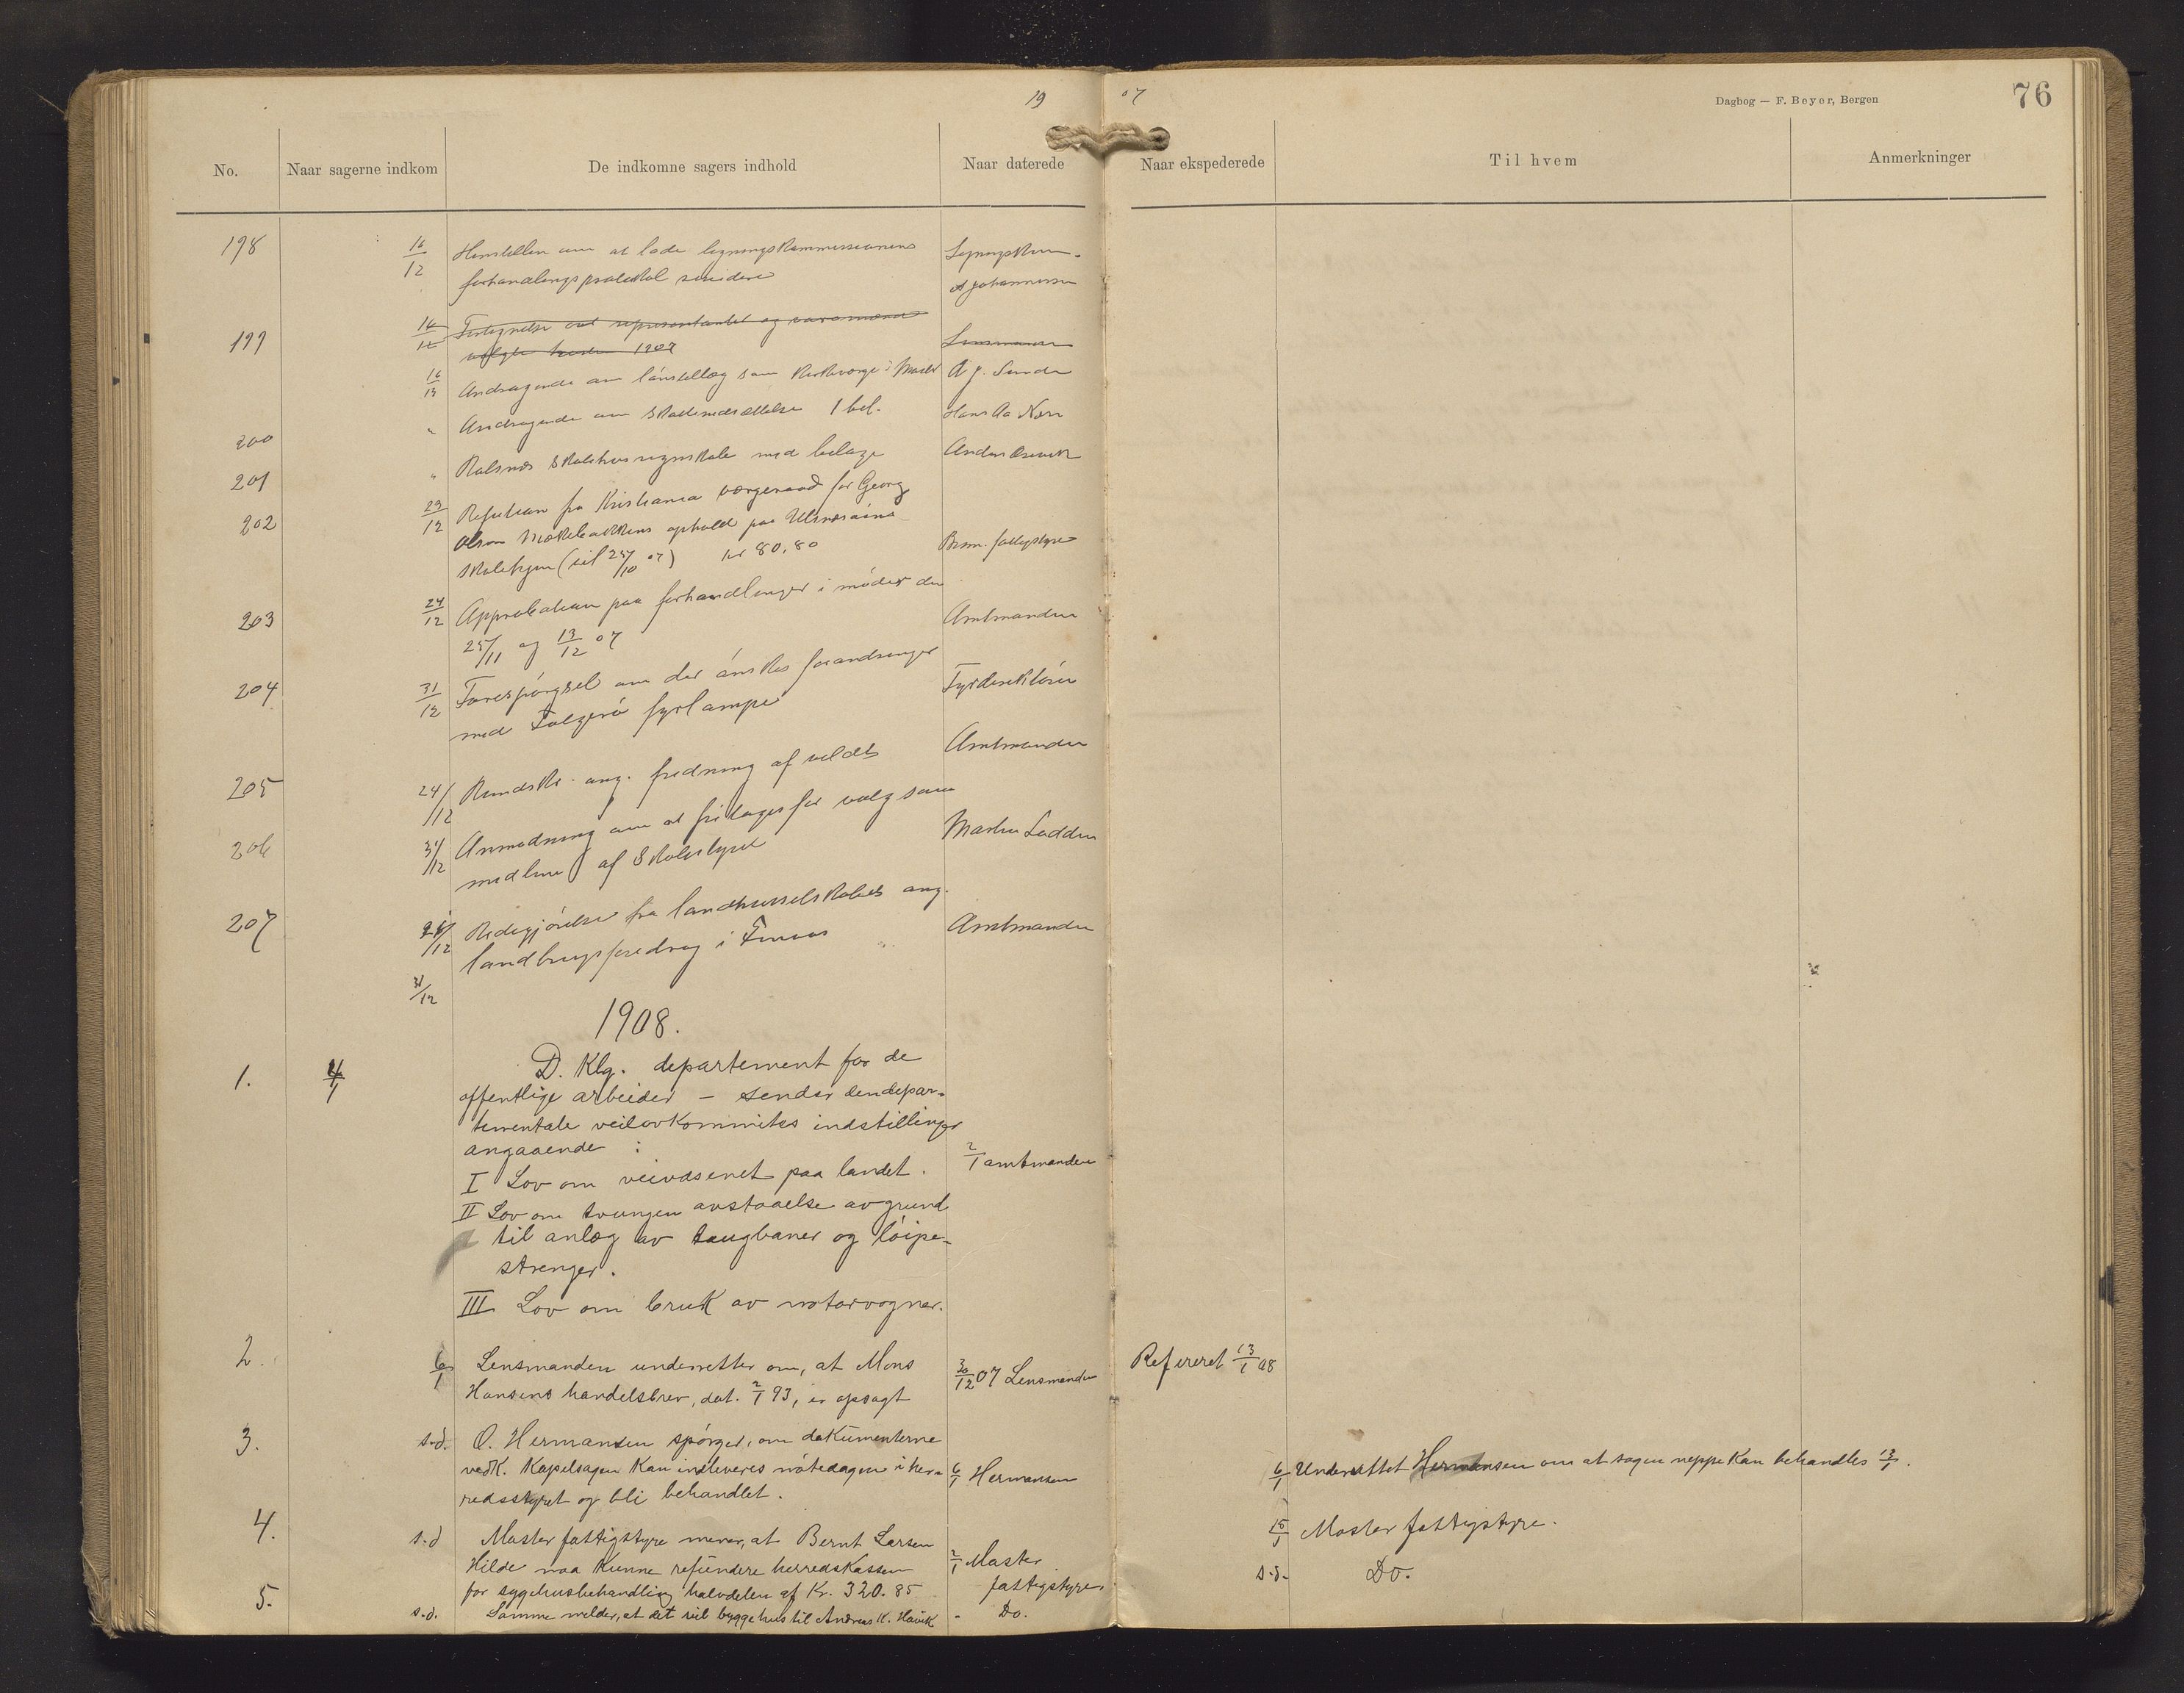 19 07
Dagbog — F. Beyer, Bergen
76
No. Naar sagerne indkom De indkomne sagers indhold Naar daterede Naar ekspederede Til hvem Anmerkninger
198 16/12 Henstillen om at lade ligningskommissionens
forhandlingsprotokol revidere
A Johannessen
199 14/12 Fortegnelse over representanter og varamænd
valgte høsten 1907 Lensmanden
16/12 Andragende om lønstillæg som kirkeværge i Moster A J. Sunde
200 " Andragende om Skattenedsættelse 1 bil. Hans Aa Næss
201 " Skolehusregnskab med bilage Anders
202 23/12 Refusion fra Kristiania værgeraad for Georg
Olson ophold paa Ulvsnesøens
Skolehjem (til 25/10 07) kr 80,80 Brem. fattigstyre
203 24/12 Approbation paa forhandlinger i møder den
25/11 og 13/12 07 Amtmanden
204 31/12 Forespørgsel om der ønskes forandringer
med Folgerø fyrlampe Fyrdirektøren
205 24/12 Rundskr. ang. fredning af vildt Amtmanden
206 31/12 Anmodning om at fritages for valg som
medlem af Skolestyret Martin Laddin
207 28/12 Redegjørelse fra landhusselskabet ang.
landbrugsforedrag i Finaas Amtmanden
31/12
1908.
1. 4/1 D. Klg. departement for de
offentlige arbeider – sender dendepar-
tementale veilovkommites indstillinger
angaaende :
I Lov om veivæsenet paa landet. 2/1 amtmanden
II Lov om tvungen avstaaelse av grund
til anlæg av taugbaner og løipe-
strenger.
III Lov om bruk av motorvogner.
2. 6/1 Lensmanden underretter om, at Mons
Hansens handelsbrev, dat. 2/1 93, er opsagt 30/12 07 Lensmanden Refereret 13/1 08
3. s.d. O. Hermansen spørger, om dokumenterne
vedk. Kapelsagen kan indleveres møtedagen i her-
redsstyret og bli behandlet. 6/1 Hermansen 6/1 Underrettet Hermansen om at sagen neppe kan behandles 13/1.
4. s.d Moster fattigstyre mener, at Bernt Larsen
Hilde maa kunne refundere herredskassen
for sygehusbehandling halvdelen af Kr. 320.85 2/1 Moster
fattigstyre. 15/1 Moster fattigstyre.
5. s.d. Samme melder, at det vil bygge hus til Andreas K. Hovik - Do. s.d. Do.